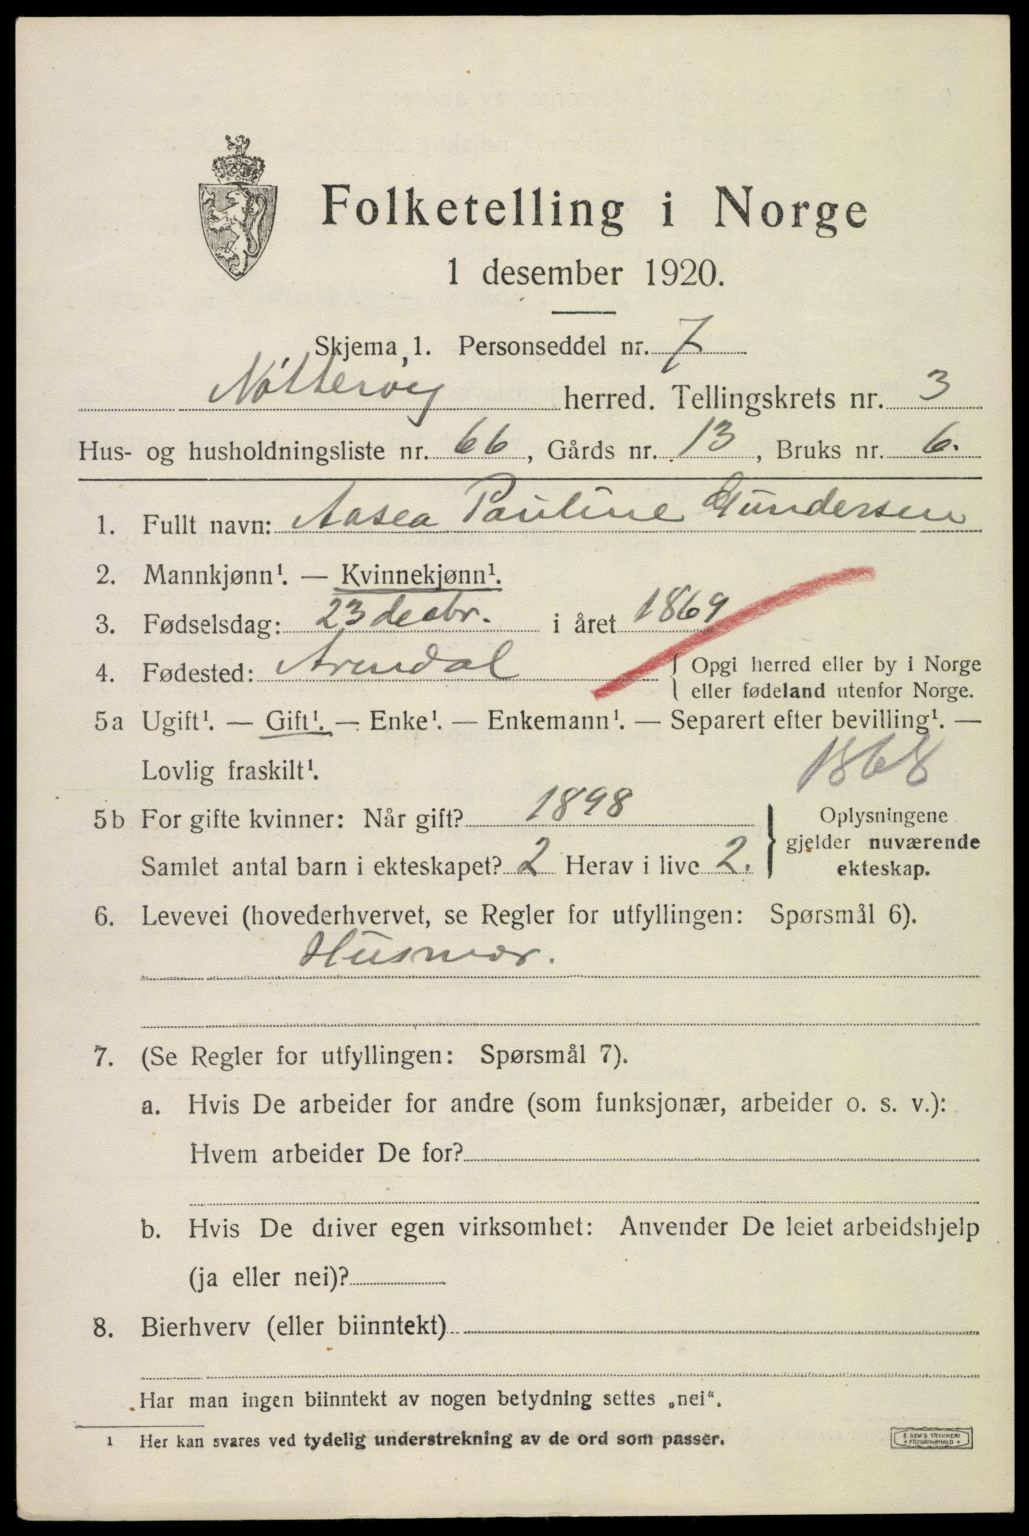 Folketelling i Norge
1 desember 1920.
Skjema 1. Personseddel nr. 7
Nøtterøy herred. Tellingskrets nr. 3
Hus- og husholdningsliste nr. 66, Gårds nr. 13, Bruks nr. 6.
1. Fullt navn: Aasea Pauline Gundersen
2. Mannkjønn¹. — Kvinnekjønn¹.
3. Fødselsdag: 23 decbr. i året 1869
4. Fødested: Arendal { Opgi herred eller by i Norge
eller fødeland utenfor Norge.
5a Ugift¹. — Gift¹. — Enke¹. — Enkemann¹. — Separert efter bevilling¹. —
Lovlig fraskilt¹. 1868
5b For gifte kvinner: Når gift? 1898
Samlet antal barn i ekteskapet? 2 Herav i live 2.
} Oplysningene
gjelder nuværende
ekteskap.
6. Levevei (hovederhvervet, se Regler for utfyllingen: Spørsmål 6).
Husmor.
7. (Se Regler for utfyllingen: Spørsmål 7).
a. Hvis De arbeider for andre (som funksjonær, arbeider o. s. v.):
Hvem arbeider De for?
b. Hvis De driver egen virksomhet: Anvender De leiet arbeidshjelp
(ja eller nei)?
8. Bierhverv (eller biinntekt)
Har man ingen biinntekt av nogen betydning settes „nei“.
¹ Her kan svares ved tydelig understrekning av de ord som passer.
E. SEM'S TRYKKERI
FREDRIKSHALD